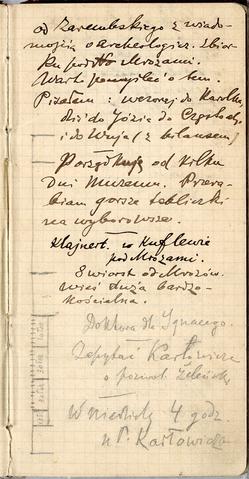 od Zarembskiego z wiado-
mością o archeologicz. zbior-
ku pod Mrozami.
Warto pomyśleć o tem.
Pisałem: wczoraj do Karola
dziś do Józia do Częstoch.
i do Wuja (z bilansem)
Porządkuję od kilku
dni Muzeum. Przera-
biam gorsze tabliczki
na wyborowsze.
Klajnert. w Kuflewie
pod Mrozami.
8 wiorst od Mrozów.
wieś duża bardzo
kościelna.
Doktora dla Ignacego.
Zapytać Karłowicza
o poznat.
W niedzielę 4 godz.
u P. Karłowicza